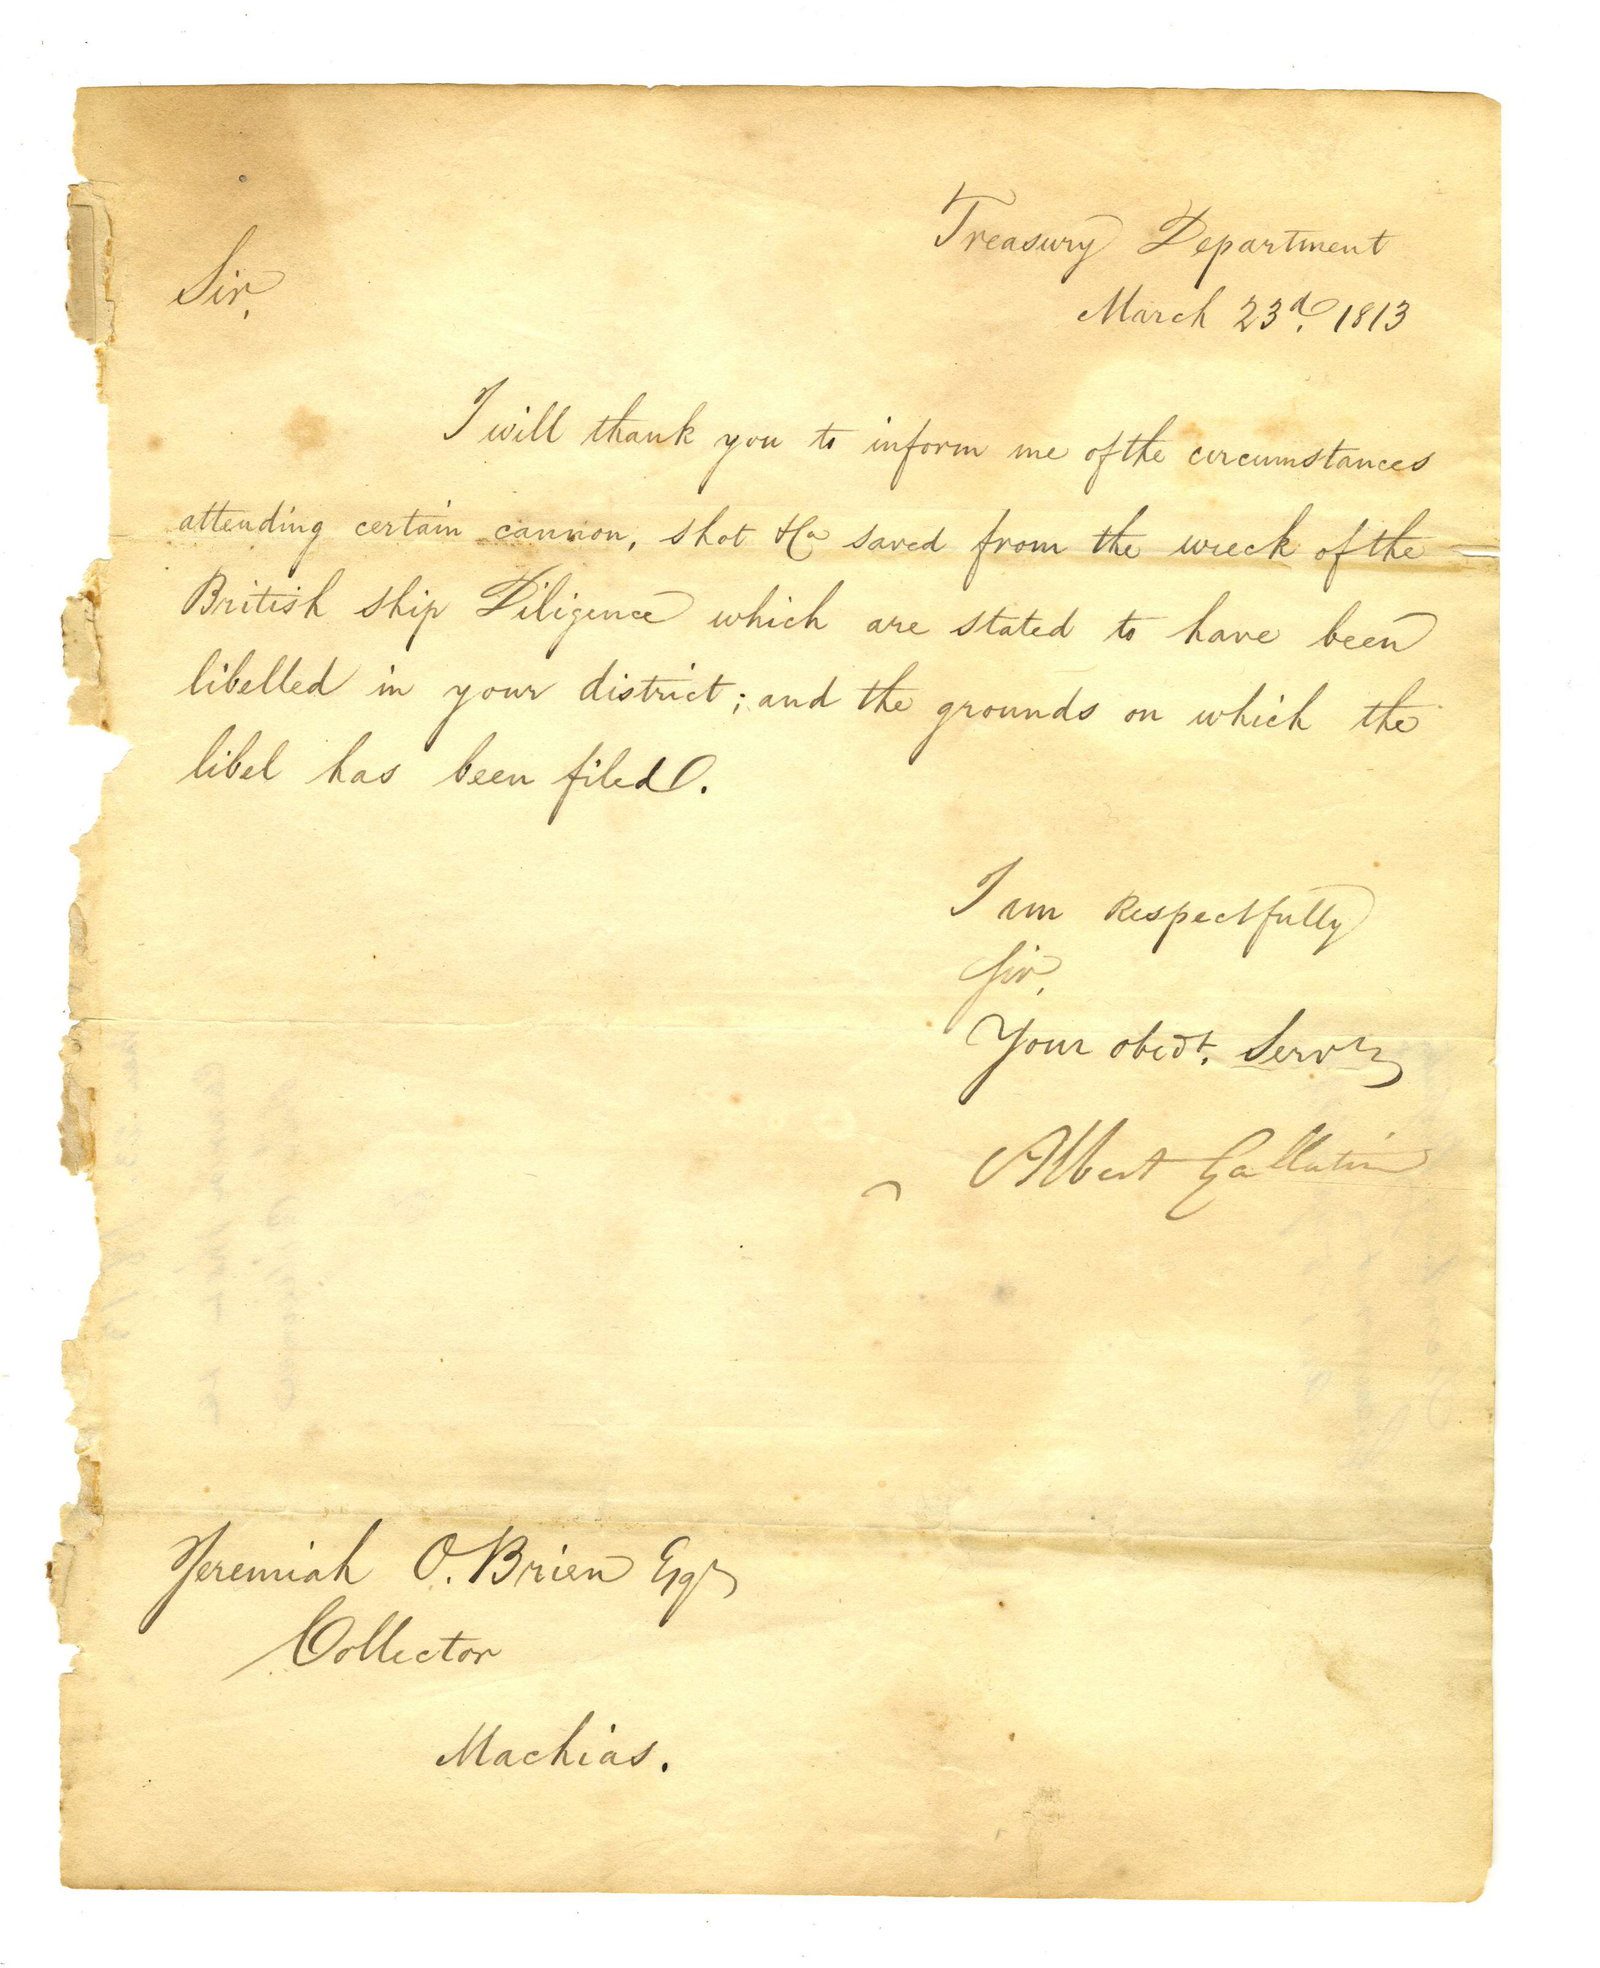 Treasury Department
March 23d. 1813
Sir,
I will thank you to inform me of the circumstances
attending certain cannon, shot &ca saved from the wreck of the
British ship Diligence which are stated to have been
libelled in your district; and the grounds on which the
libel has been filed.
I am Respectfully
Sir,
Your obedt. Servt
Albert Gallatin
Jeremiah O.Brien Esqr
Collector
Machias.